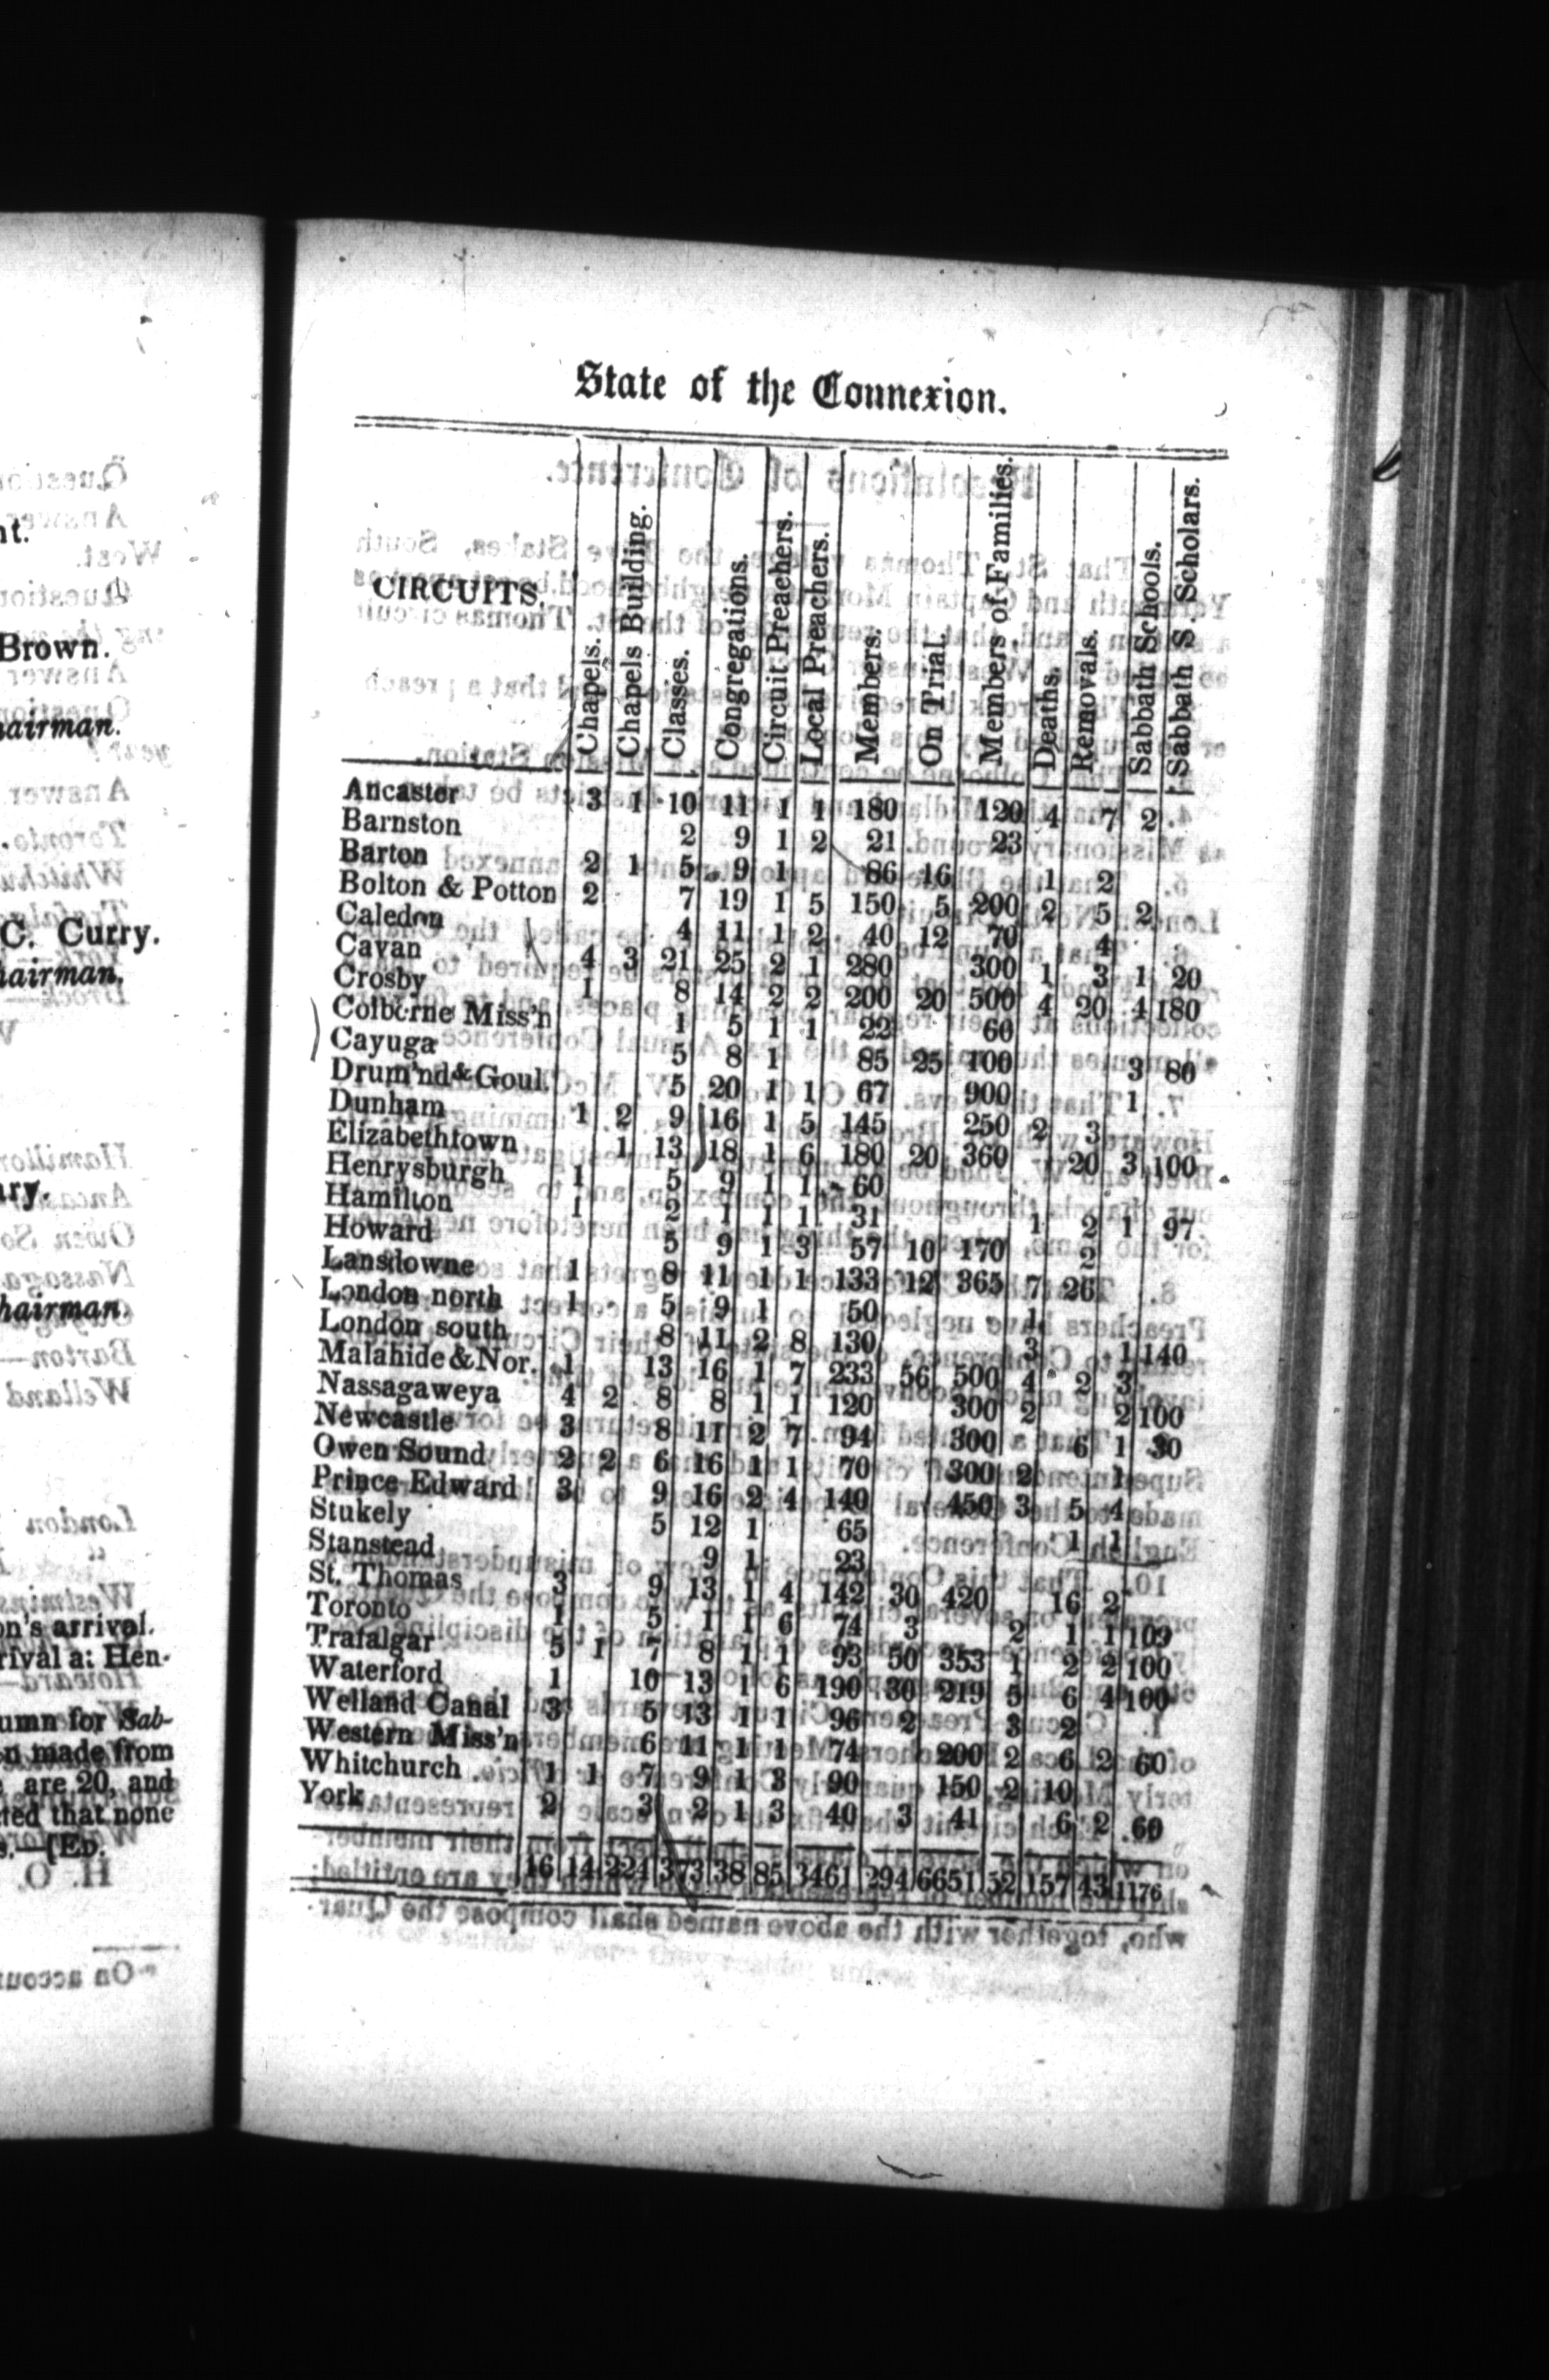 nt.
Brown.
hairman.
C. Curry.
hairman.
ary.
hairman.
on's arrival.
rival at Hen-
umn for Sab-
on made from
are 20, and
ted that none
s.—[Ed.
State of the Connexion.
CIRCUITS. Chapels. Chapels Building. Classes. Congregations. Circuit Preachers. Local Preachers. Members. On Trial. Members of Families. Deaths. Removals. Sabbath Schools. Sabbath S. Scholars.
Ancaster 3 1 10 11 1 1 180 120 4 7 2
Barnston 2 9 1 2 21 23
Barton 2 1 5 9 1 86 16 1 2
Bolton & Potton 2 7 19 1 5 150 5 200 2 5 2
Caledon 4 11 1 2 40 12 70 4
Cavan 4 3 21 25 2 1 280 300 1 3 1 20
Crosby 1 8 14 2 2 200 20 500 4 20 4 180
Colborne Miss'n 1 5 1 1 22 60
Cayuga 5 8 1 85 25 100 3 80
Drum'nd & Goul. 5 20 1 1 67 900 1
Dunham 1 2 9 16 1 5 145 250 2 3
Elizabethtown 1 13 18 1 6 180 20 360 20 3 100
Henrysburgh 1 5 9 1 1 60
Hamilton 1 2 1 1 1 31 1 2 1 97
Howard 5 9 1 3 57 10 170 2
Lansdowne 1 8 11 1 1 133 12 365 7 26
London north 1 5 9 1 50 1
London south 8 11 2 8 130 3 1 140
Malahide & Nor. 1 13 16 1 7 233 56 500 4 2 3
Nassagaweya 4 2 8 8 1 1 120 300 2 2 100
Newcastle 3 8 11 2 7 94 300 6 1 30
Owen Sound 2 2 6 16 1 1 70 300 2 1
Prince Edward 3 9 16 2 4 140 450 3 5 4
Stukely 5 12 1 65 1 1
Stanstead 9 1 23
St. Thomas 3 9 13 1 4 142 30 420 16 2
Toronto 1 5 1 1 6 74 3 2 1 1 109
Trafalgar 5 1 7 8 1 1 93 50 353 1 2 2 100
Waterford 1 10 13 1 6 190 30 219 5 6 4 100
Welland Canal 3 5 13 1 1 96 2 3 2
Western Miss'n 6 11 1 1 74 200 2 6 2 60
Whitchurch 1 1 7 9 1 3 90 150 2 10
York 2 3 2 1 3 40 3 41 6 2 60
16 14 224 373 38 85 3461 294 6651 52 157 43 1176